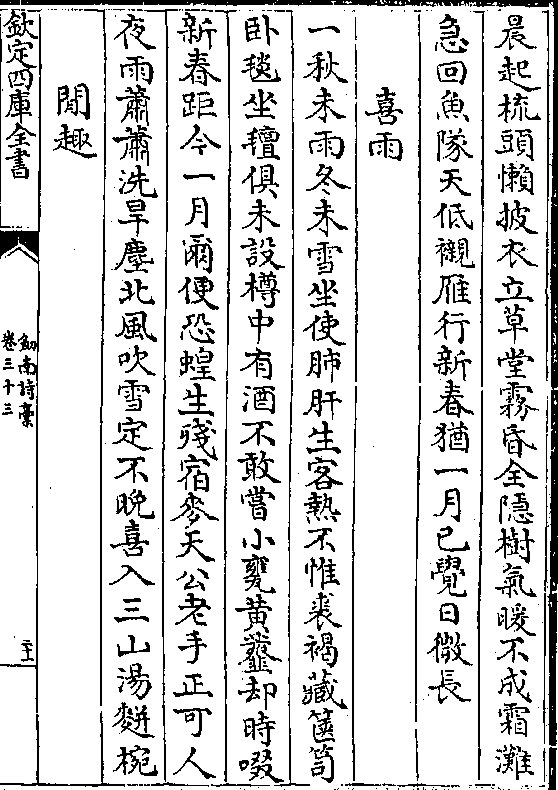 晨起梳頭懶披衣立草堂霧昏全隱樹氣暖不成霜灘
急回魚隊天低襯雁行新春猶一月已覺日微長
喜雨
一秋未雨冬未雪坐使肺肝生客熱不惟裘褐藏篋笥
卧毯坐氊俱未設樽中有酒不敢嘗小甕黃虀却時啜
新春距今一月爾便恐蝗生殘宿麥天公老手正可人
夜雨蕭蕭洗旱塵北風吹雪定不晚喜入三山湯麫椀
閒趣
欽定四庫全書
劒南詩槀
卷三十三
二十